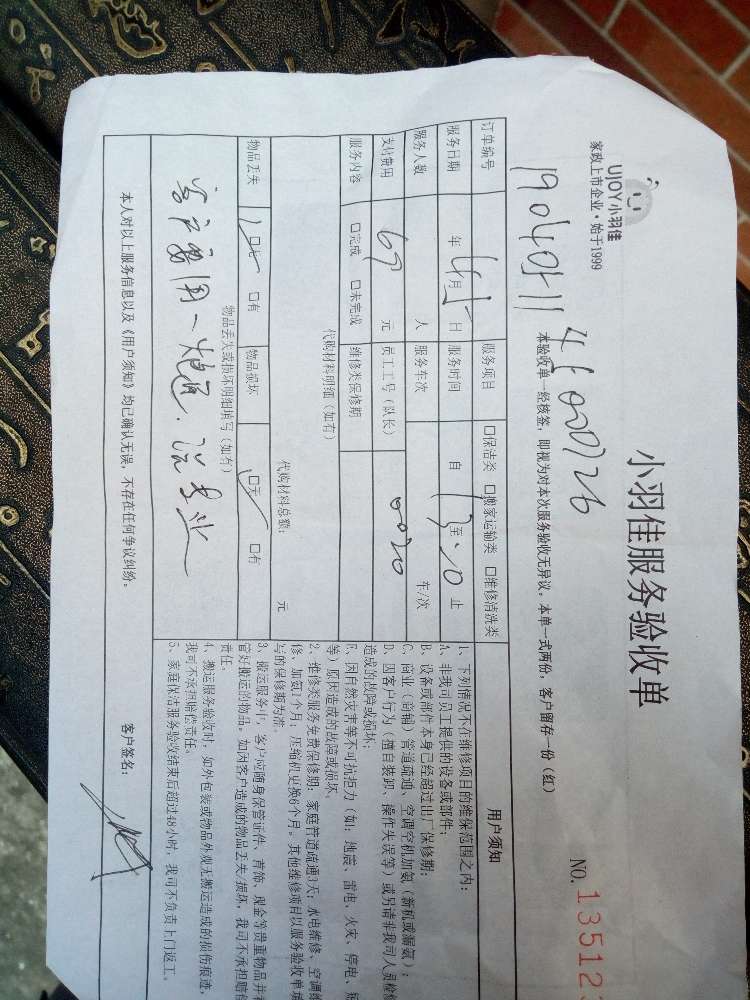 UJOY小羽佳
家政上市企业·始于1999
小羽佳服务验收单
本验收单一经核签，即视为对本次服务验收无异议。本单一式两份，客户留存一份（红）
NO. 135125
订单编号
服务项目 □保洁类 □搬家运输类 □维修清洗类
服务日期 年 4月 日 服务时间 自 至 止
服务人数 人 服务车次 车/次
支付费用 69 元 员工工号（队长） 0020
服务内容 □完成 □未完成 维修类保修期
代购材料明细（如有）
代购材料总额： 元
物品丢失 □无 □有 物品损坏 □无 □有
物品丢失或损坏明细填写（如有）
本人对以上服务信息以及《用户须知》均已确认无误，不存在任何争议纠纷。
用户须知
1、下列情况不在维修项目的维保范围之内：
A、非我司员工提供的设备或部件；
B、设备或部件本身已经超过出厂保修期；
C、商业（商铺）管道疏通、空调空机加氨（新机或漏氨）；
D、因客户行为（擅自装卸、操作失误等）或另请非我司人员检修
造成的故障或损坏；
E、因自然灾害等不可抗拒力（如：地震、雷电、火灾、停电、
等）原因造成的故障或损坏。
2、维修类服务免费保修期：家庭管道疏通3天；水电维修、空调维
修、加氨1个月，压缩机更换6个月。其他维修项目以服务验收单填
写的保修期为准。
3、搬运服务中，客户应随身保管证件、首饰、现金等贵重物品并
管好搬运的物品。如因客户造成的物品丢失/损坏，我司不承担赔偿
责任。
4、搬运服务验收时，如外包装或物品外观无搬运造成的损伤痕迹，
我司可不承担赔偿责任。
5、家庭保洁服务验收结束后超过48小时，我司不负责上门返工。
客户签名：